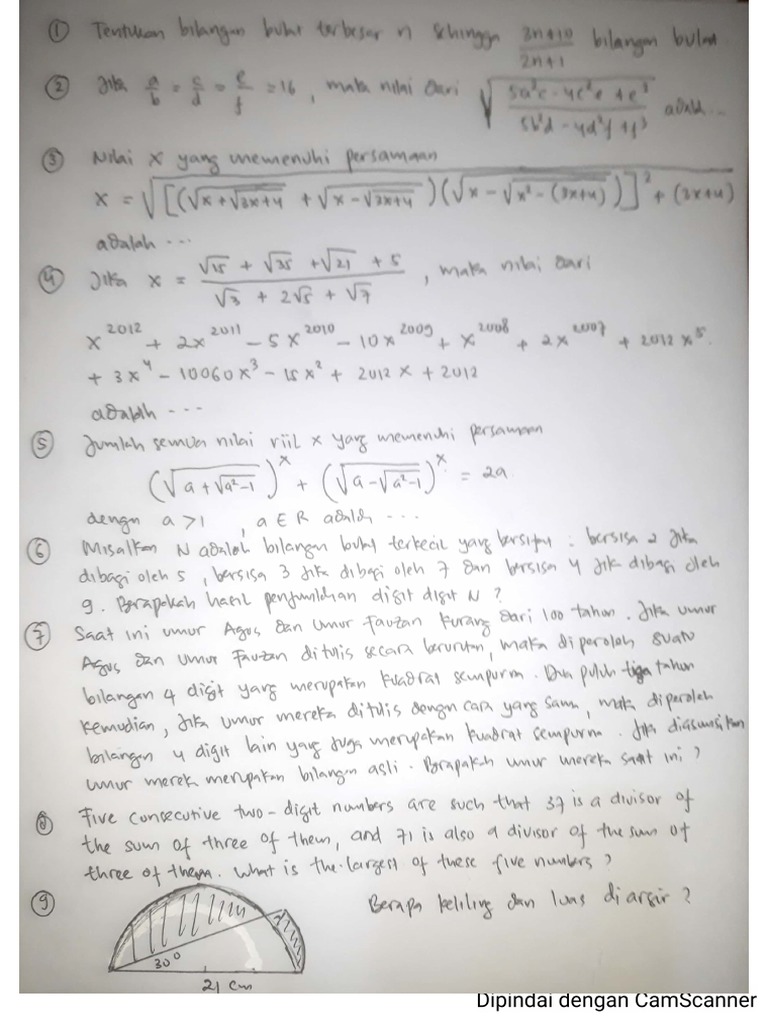 ① Tentukan bilangan bulat terbesar n sehingga (3n+10)/(2n+1) bilangan bulat
② Jika a/b = c/d = e/f = 16, maka nilai dari √((5a²c - 4c²e + e³)/(5b²d - 4d²f + f³)) adalah...
③ Nilai x yang memenuhi persamaan
x = √([(√(x+√(3x+4)) + √(x-√(3x+4)))(√(x-√(x²-(3x+4))))]² + (3x+4))
adalah ...
④ Jika x = (√15 + √35 + √21 + 5)/(√3 + 2√5 + √7), maka nilai dari
x²⁰¹² + 2x²⁰¹¹ - 5x²⁰¹⁰ - 10x²⁰⁰⁹ + x²⁰⁰⁸ + 2x²⁰⁰⁷ + 2012x⁵
+ 3x⁴ - 10060x³ - 15x² + 2012x + 2012
adalah ...
⑤ Jumlah semua nilai riil x yang memenuhi persamaan
(√(a+√(a²-1)))ˣ + (√(a-√(a²-1)))ˣ = 2a
dengan a > 1, a ∈ R adalah ...
⑥ Misalkan N adalah bilangan bulat terkecil yang bersifat : bersisa 2 jika
dibagi oleh 5, bersisa 3 jika dibagi oleh 7 dan bersisa 4 jik dibagi oleh
9. Berapakah hasil penjumlahan digit digit N ?
⑦ Saat ini umur Agus dan umur Fauzan kurang dari 100 tahun. Jika umur
Agus dan umur Fauzan ditulis secara berurutan, maka diperoleh suatu
bilangan 4 digit yang merupakan kuadrat sempurna. Dua puluh tiga tahun
kemudian, jika umur mereka ditulis dengan cara yang sama, maka diperoleh
bilangan 4 digit lain yang juga merupakan kuadrat sempurna. Jika diasumsikan
umur merek merupakan bilangan asli. Berapakah umur mereka saat ini ?
⑧ Five consecutive two-digit numbers are such that 37 is a divisor of
the sum of three of them, and 71 is also a divisor of the sum of
three of them. What is the largest of these five numbers ?
⑨ Berapa keliling dan luas diarsir ?
30°
21 cm
Dipindai dengan CamScanner